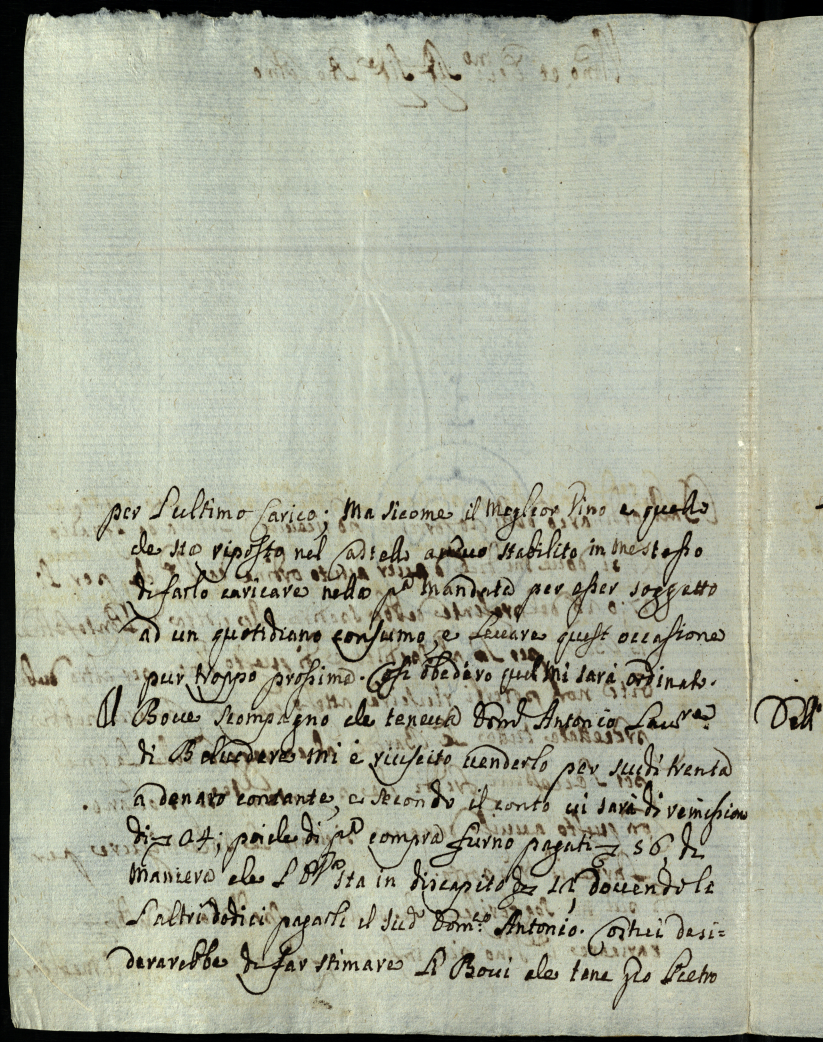 per l'ultimo Carico; Ma sicome il Meglior Vino e quello
che sta riposto nel Castello stabilito in me stesso
di farlo caricare nella pª Mandata per esser soggetto
ad un quotidiano consumo, e Levare quest occasione
pur troppo prossima. Cosi obbediro quel Mi sarà ordinato.
Il Bove scompagno che teneva Domº Antonio
di Belvedere Mi è riuscito venderlo per scudi trenta
a denaro contante, e secondo il conto vi sarà di remissione
di 24; poiche di pª compra furno pagati 56, di
Maniera che sta in discapito 12, dovendo le
L'altri dodici pagarli il sudº Domco Antonio. Costui desi=
derarebbe di far stimare Li Bovi che tene Gio Pietro
Dell